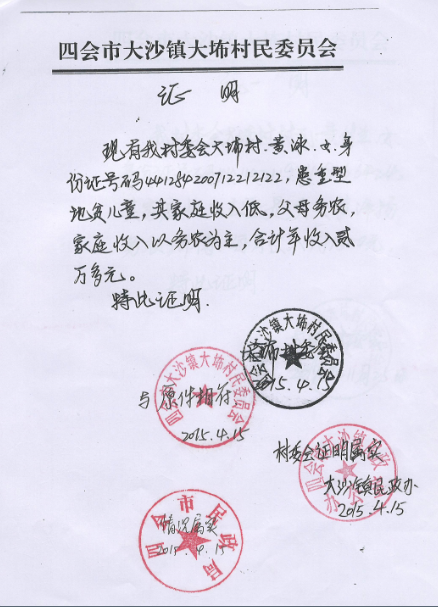 四会市大沙镇大㘵村民委员会
证 明
现有我村委会大㘵村.黄泳.女.身
份证号码441284200712212122,患重型
地贫儿童,其家庭收入低,父母务农,
家庭收入以务农为主,合计年收入贰
万多元。
特此证明.
大㘵村委会
2015.4.15
四会市大沙镇大㘵村民委员会
与原件相符
2015.4.15
村委会证明属实
大沙镇民政办
2015.4.15
四会市民政局
情况属实
2015.4.15